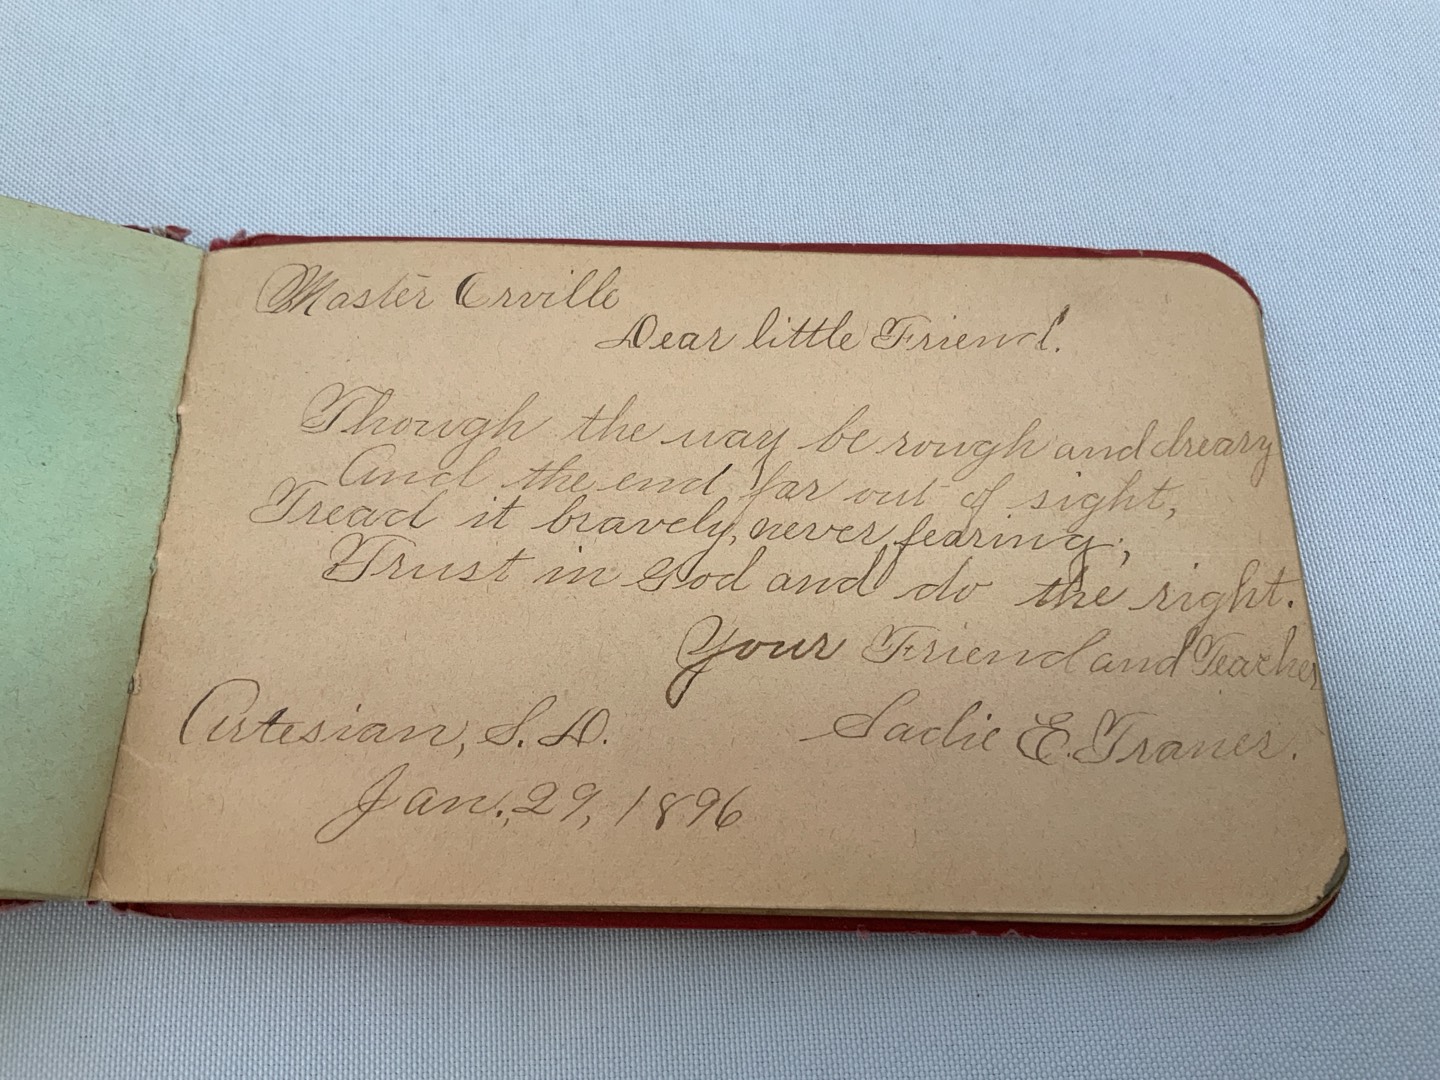 Master Orville
Dear little Friend.
Though the way be rough and dreary
And the end far out of sight,
Tread it bravely, never fearing;
Trust in God and do the right.
Your Friend and Teacher
Artesian, S. D.
Sadie E. Traner.
Jan. 29, 1896